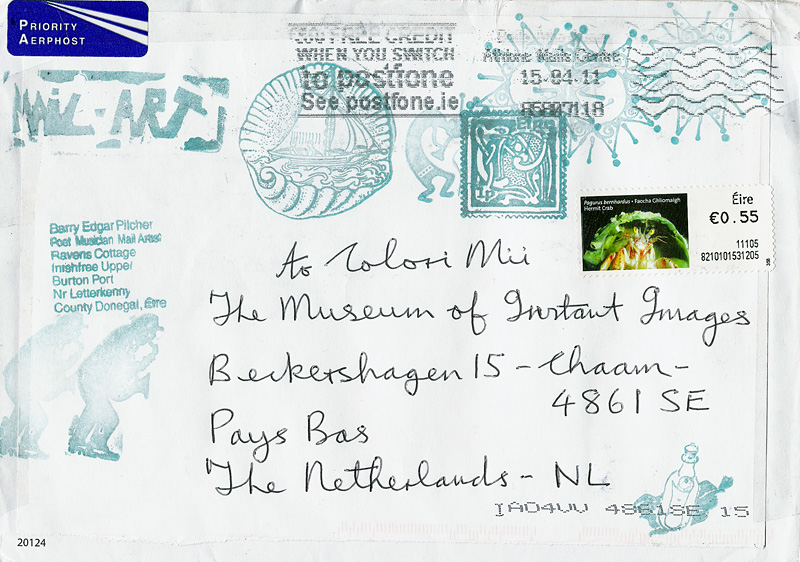 PRIORITY
AERPHOST
MAIL-ART
100 FREE CREDIT
WHEN YOU SWITCH
to postfone
See postfone.ie
Athlone Mails Centre
15.04.11
85807118
1p
Pagurus bernhardus • Faocha Ghliomaigh
Hermit Crab
Éire
€0.55
11105
8210101531205
Barry Edgar Pilcher
Poet Musician Mail Artist
Ravens Cottage
Inishfree Upper
Burton Port
Nr Letterkenny
County Donegal, Éire
To Colori Mii
The Museum of Instant Images
Beckershagen 15 - Chaam -
4861 SE
Pays Bas
The Netherlands - NL
IA04UU 4861SE 15
20124